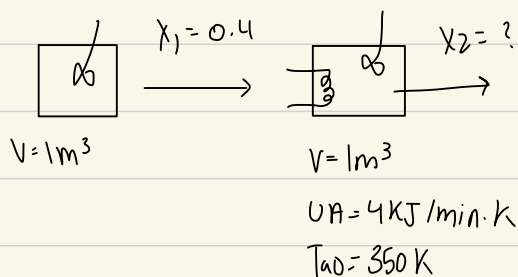 X₁ = 0.4
X₂ = ?
V = 1m³
V = 1m³
UA = 4KJ/min.K
Tao = 350K